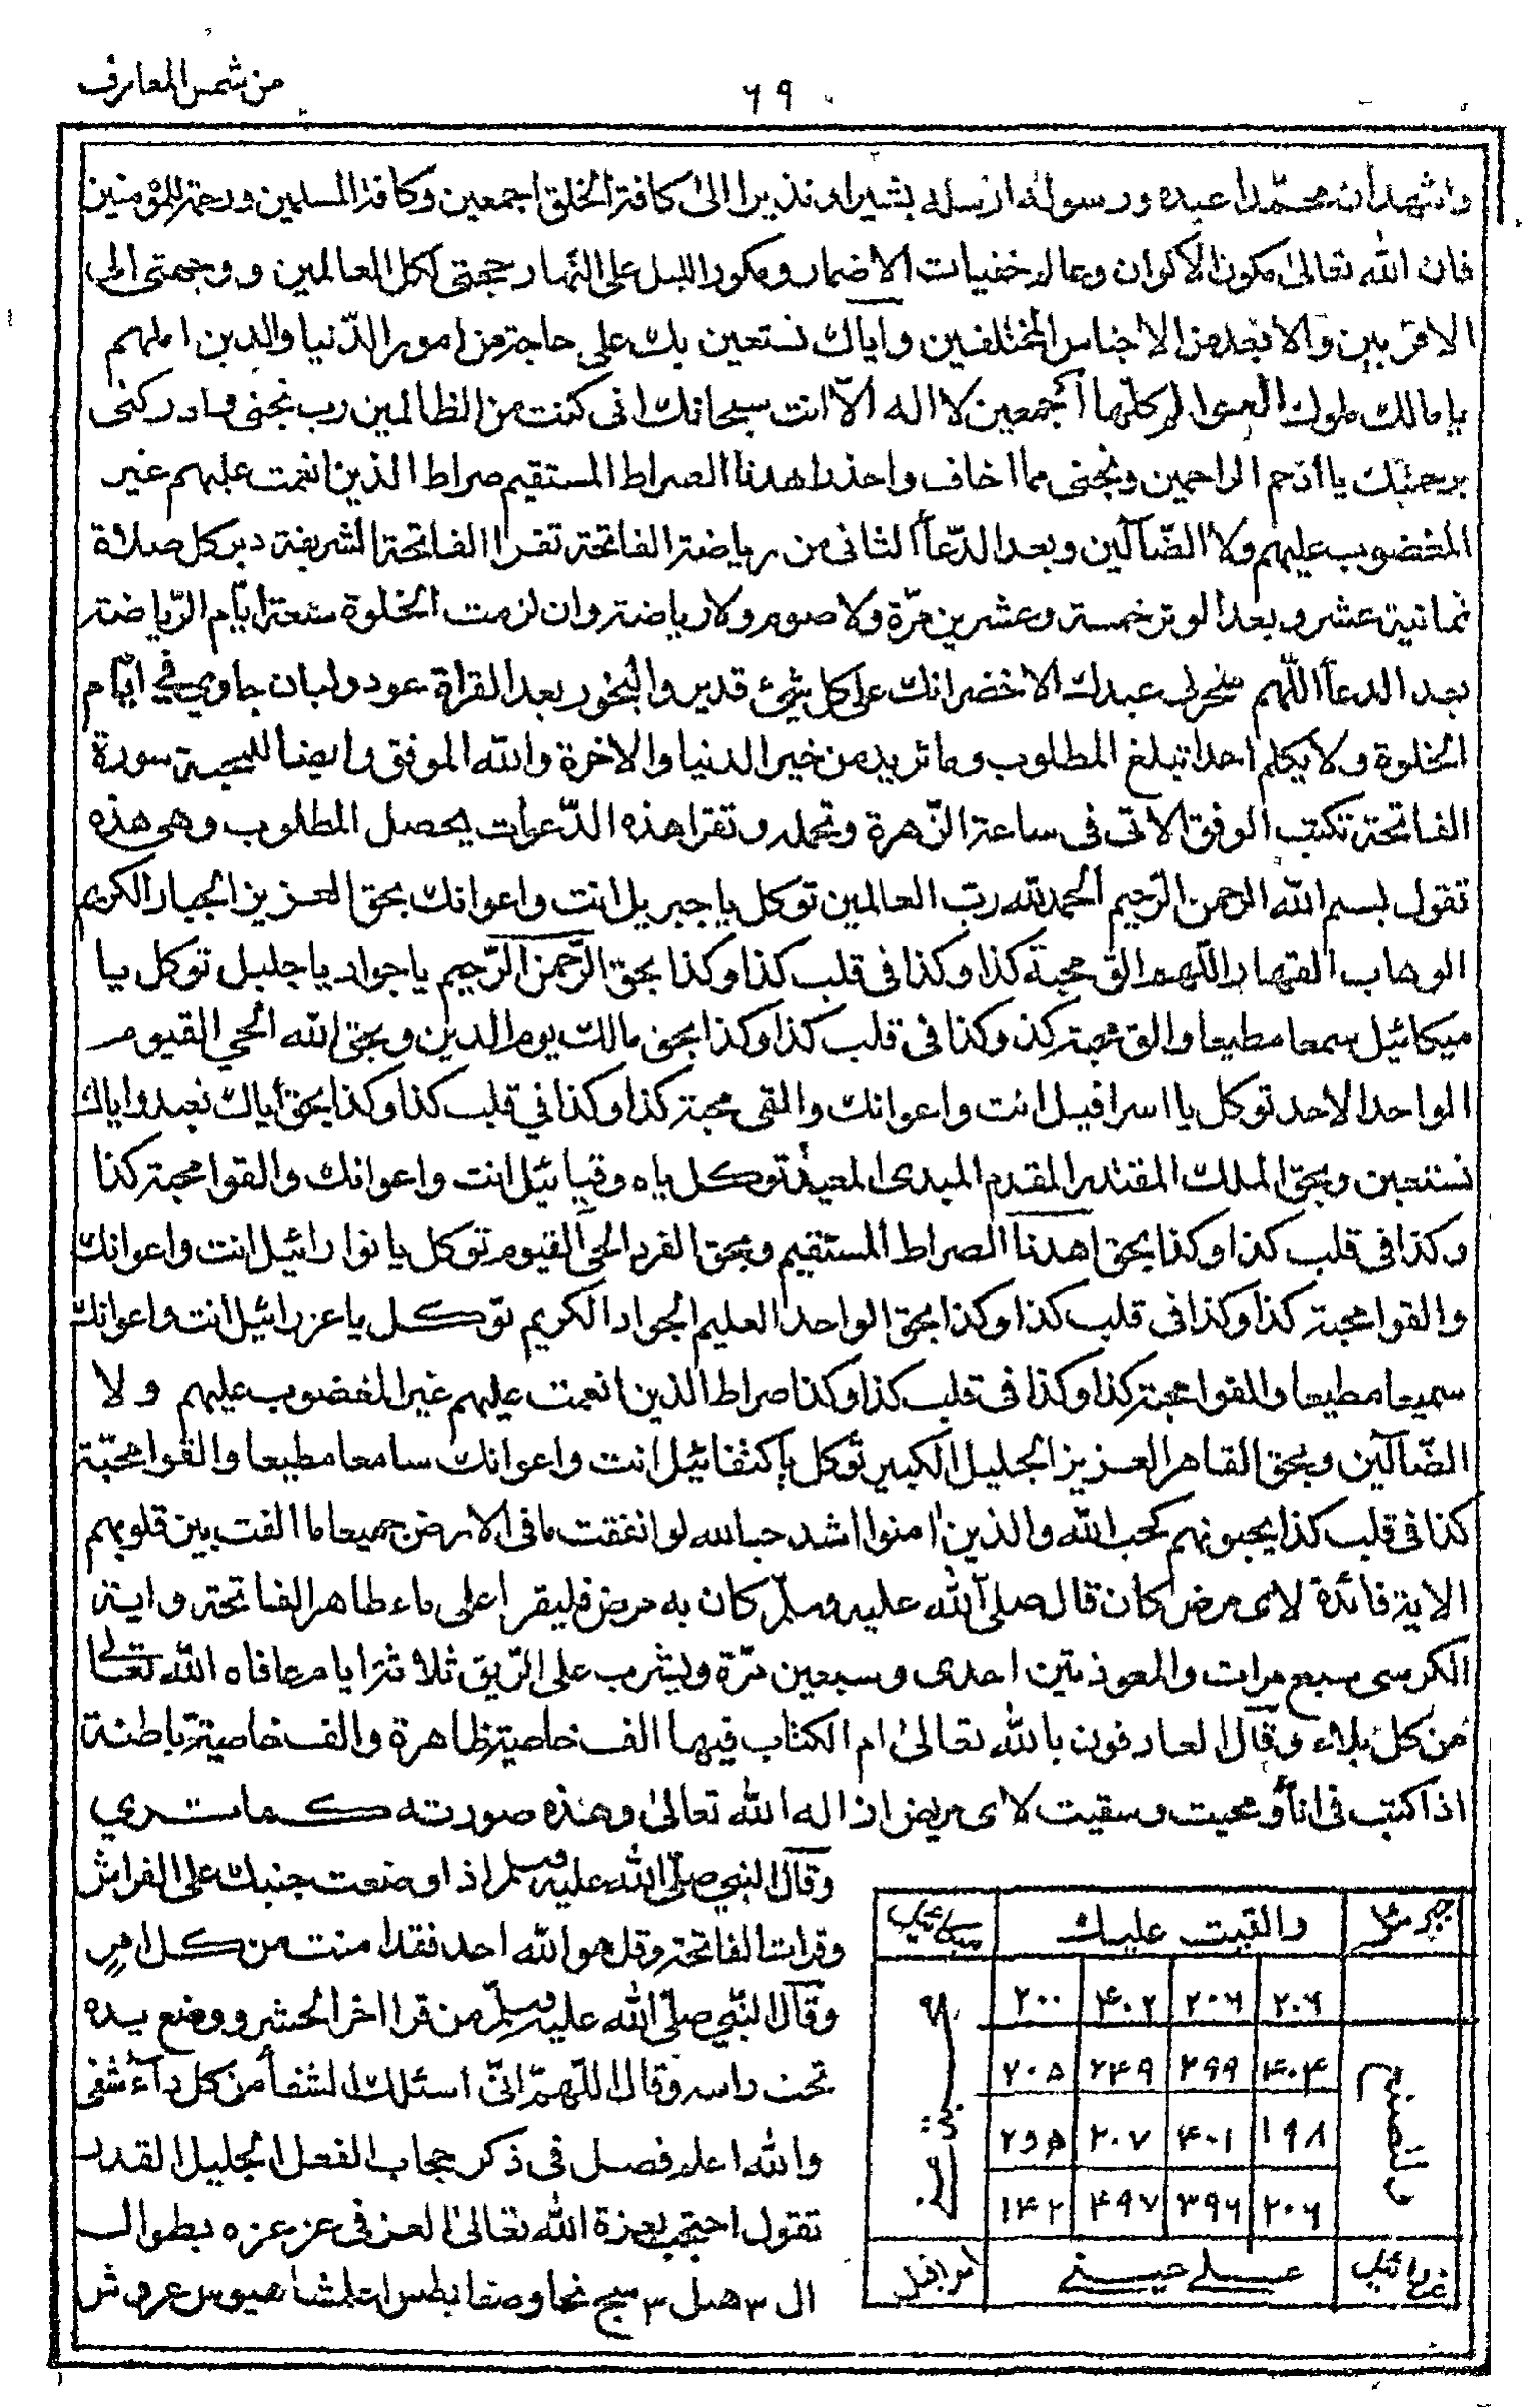 من شمس المعارف
٦٩
واشهد ان محمّدا عبده ورسوله ارسله بشيرا ونذيرا الى كافة الخلق اجمعين وكافة المسلمين ورحمة للمؤمنين
فان الله تعالى مكون الاكوان وعالم خفيات الاضمار ومكور الليل على النهار حجتى لكل العالمين ووجهتى الى
الاقربين والابعد من الاجناس المختلفين واياك نستعين بك على حاجة من امور الدّنيا والدين املهم
يا مالك ملوك العوالم كلها اجمعين لا اله الاّ انت سبحانك انى كنت من الظالمين رب نجنى وادركنى
برحمتك يا ارحم الراحمين ونجنى مما اخاف واحذر اهدنا الصراط المستقيم صراط الذين انعمت عليهم غير
المغضوب عليهم ولا الضّآلين وبعد الدّعآ الثانى من رياضة الفاتحة تقرا الفاتحة الشريفة دبر كل صلاة
ثمانية عشر وبعد الوتر خمسة وعشرين مرّة ولا صوم ولا رياضة وان لزمت الخلوة سبعة ايّام الرّياضة
بعد الدعآ اللّهم سخر لى عبدك الاخضر انك على كل شئ قدير والبخور بعد القراة عود ولبان جاوي في ايّام
الخلوة ولا يكلم احدا تبلغ المطلوب وما تريد من خير الدنيا والاخرة والله الموفق وايضا للمحبة سورة
الفاتحة تكتب الوفق الاتى فى ساعة الزّهرة وتحمله وتقرا هذه الدّعوات يحصل المطلوب وهى هذه
تقول بسم الله الرحمن الرّحيم الحمد لله ربّ العالمين توكل يا جبريل انت واعوانك بحق العزيز الجبار الكريم
الوهاب القهار اللّهم الق محبة كذا وكذا فى قلب كذا وكذا بحق الرّحمن الرّحيم يا جواد يا جليل توكل يا
ميكائيل سمعا مطيعا والق محبة كذ وكذا فى قلب كذا وكذا بحق مالك يوم الدين وبحق الله الحي القيوم
الواحد الاحد توكل يا اسرافيل انت واعوانك والقى محبة كذا وكذا في قلب كذا وكذا بحق اياك نعبد واياك
نستعين وبحق الملك المقتدر المقدم المبدى المعيد توكل ياه وقيائيل انت واعوانك والقوا محبة كذا
وكذا فى قلب كذا وكذا بحق اهدنا الصراط المستقيم وبحق الفرد الحى القيوم توكل يا نورائيل انت واعوانك
والقوا محبة كذا وكذا فى قلب كذا وكذا بحق الواحد العليم الجواد الكريم توكل يا عزرائيل انت واعوانك
سميعا مطيعا والقوا محبة كذا وكذا فى قلب كذا وكذا صراط الذين انعمت عليهم غير المغضوب عليهم ولا
الضّآلين وبحق القاهر العزيز الجليل الكبير توكل يا كثفائيل انت واعوانك سامعا مطيعا والقوا محبّة
كذا فى قلب كذا يحبونهم كحب الله والذين امنوا اشد حبا لله لو انفقت ما فى الارض جميعا ما الفت بين قلوبهم
الاية فائدة لاى مرض كان قال صلى الله عليه وسلّم كان به مرض فليقرا على ماء طاهر الفاتحة واية
الكرسى سبع مرات والمعوذتين احدى وسبعين مرّة ويشرب على الرّيق ثلاثة ايام عافاه الله تعالى
من كل بلاء وقال العارفون بالله تعالى ام الكتاب فيها الف خاصية ظاهرة والف خاصية باطنة
اذا كتب فى انآ ومحيت وسقيت لاى مريض ازاله الله تعالى وهذه صورته كما ترى
وقال النبي صلّى الله عليه وسلم اذا وضعت جنبك على الفراش
وقرات الفاتحة وقل هو الله احد فقد امنت من كل امر
وقال النّبي صلّى الله عليه وسلّم من قرا اخر الحشر ووضع يده
تحت راسه وقال اللّهمّ انّى اسئلك الشفآ من كل دآء شفى
والله اعلم فصل فى ذكر حجاب الفعل الجليل القدر
تقول احتجب بعزة الله تعالى العز فى عز عزه بطوال
ال ٣ هىل ٣
والقيت عليك
ميكائيل
٢٠٦ ٢٠٦ ٤٠٢ ٢٠٠
٤٠٤ ٢٩٩ ٢٤٩ ٢٠٥
١٩٨ ٤٠١ ٢٠٧
٢٠٦ ٣٩٦ ٤٩٧ ١٤٢
محبة
ولتصنع
عزرائيل
على عينى
اسرافيل